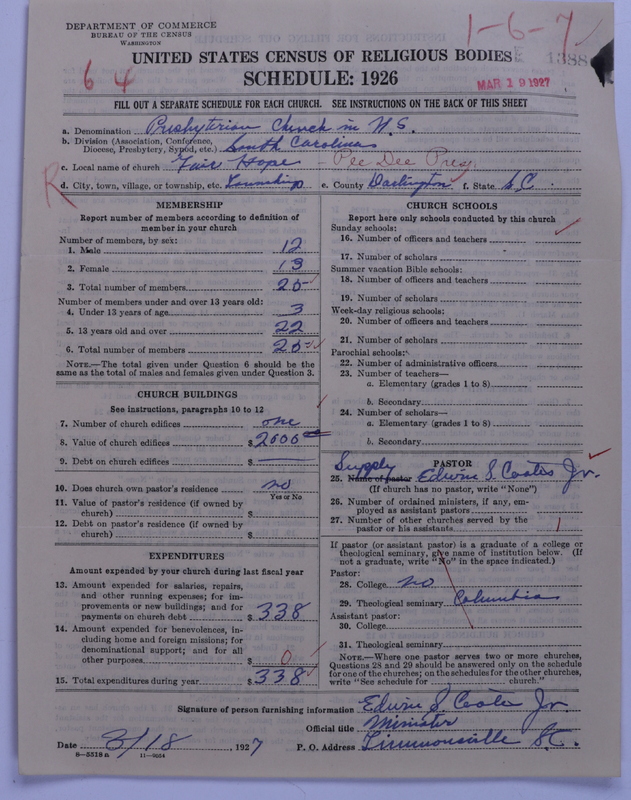 DEPARTMENT OF COMMERCE
BUREAU OF THE CENSUS
WASHINGTON
1-6-7
1388
MAR 19 1927
6 4
UNITED STATES CENSUS OF RELIGIOUS BODIES
SCHEDULE: 1926
FILL OUT A SEPARATE SCHEDULE FOR EACH CHURCH. SEE INSTRUCTIONS ON THE BACK OF THIS SHEET
a. Denomination Presbyterian Church in U.S.
b. Division (Association, Conference, Diocese, Presbytery, Synod, etc.) South Carolina
c. Local name of church Fair Hope - Pee Dee Presy
R
d. City, town, village, or township, etc. Township e. County Darlington f. State S.C.
MEMBERSHIP
Report number of members according to definition of
member in your church
Number of members, by sex:
1. Male 12
2. Female 13
3. Total number of members 25
Number of members under and over 13 years old:
4. Under 13 years of age 3
5. 13 years old and over 22
6. Total number of members 25
NOTE.—The total given under Question 6 should be the
same as the total of males and females given under Question 3.
CHURCH BUILDINGS
See instructions, paragraphs 10 to 12
7. Number of church edifices one
8. Value of church edifices $ 2000
9. Debt on church edifices $
10. Does church own pastor's residence no
Yes or No
11. Value of pastor's residence (if owned by
church) $
12. Debt on pastor's residence (if owned by
church) $
EXPENDITURES
Amount expended by your church during last fiscal year
13. Amount expended for salaries, repairs,
and other running expenses; for im-
provements or new buildings; and for
payments on church debt $ 338
14. Amount expended for benevolences, in-
cluding home and foreign missions; for
denominational support; and for all
other purposes $ 0
15. Total expenditures during year $ 338
CHURCH SCHOOLS
Report here only schools conducted by this church
Sunday schools:
16. Number of officers and teachers
17. Number of scholars
Summer vacation Bible schools:
18. Number of officers and teachers
19. Number of scholars
Week-day religious schools:
20. Number of officers and teachers
21. Number of scholars
Parochial schools:
22. Number of administrative officers
23. Number of teachers—
a. Elementary (grades 1 to 8)
b. Secondary
24. Number of scholars—
a. Elementary (grades 1 to 8)
b. Secondary
PASTOR
Supply
25. Name of pastor Edwin S. Coates Jr.
(If church has no pastor, write "None")
26. Number of ordained ministers, if any, em-
ployed as assistant pastors
27. Number of other churches served by the
pastor or his assistants 1
If pastor (or assistant pastor) is a graduate of a college or
theological seminary, give name of institution below. (If
not a graduate, write "No" in the space indicated.)
Pastor:
28. College no
29. Theological seminary Columbia
Assistant pastor:
30. College
31. Theological seminary
NOTE.—Where one pastor serves two or more churches,
Questions 28 and 29 should be answered only on the schedule
for one of the churches; on the schedules for the other churches,
write "See schedule for church."
Signature of person furnishing information Edwin S. Coates Jr
Official title Minister
Date 3/18, 1927 P. O. Address Timmonsville S.C.
8—5518a 11—9554